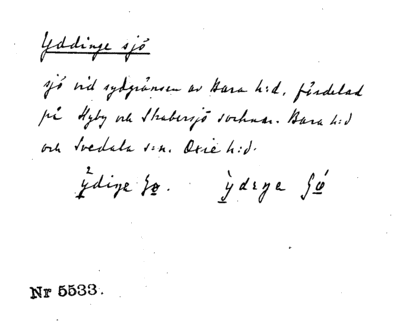 Yddinge sjö
sjö vid sydgränsen av Bara h:d, fördelad
på Hyby och Skabersjö socknar. Bara h:d
och Svedala s:n. Oxie h:d.
Nr 5533.